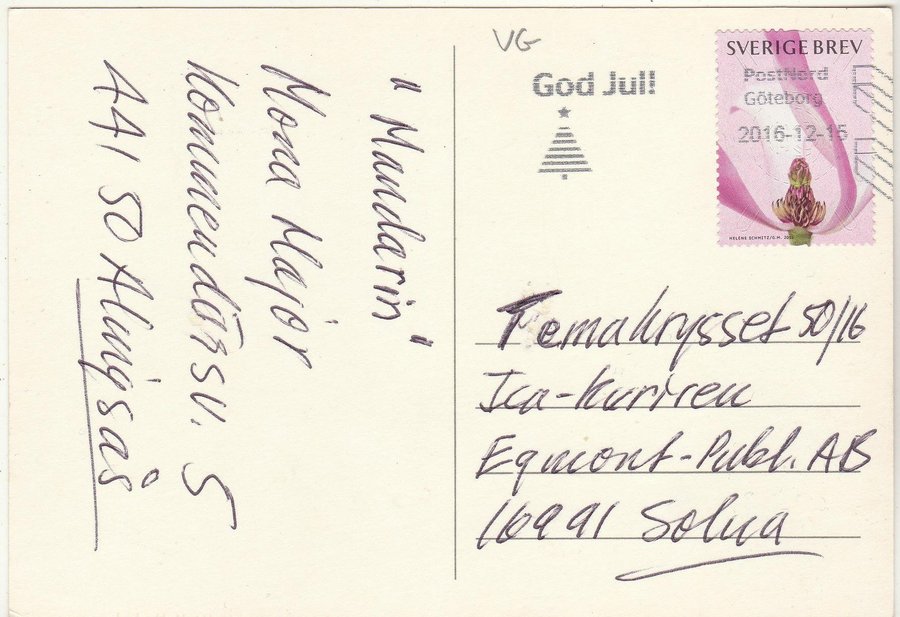 " Mandarin "
Mona Major
Kommendörsv. 5
441 50 Alingsås
VG
God Jul!!
SVERIGE BREV
PostNord
Göteborg
2016-12-15
HELENE SCHMITZ/G.M.
Temakrysset 50/16
Ica-kuriren
Egmont-Publ. AB
16991 Solna